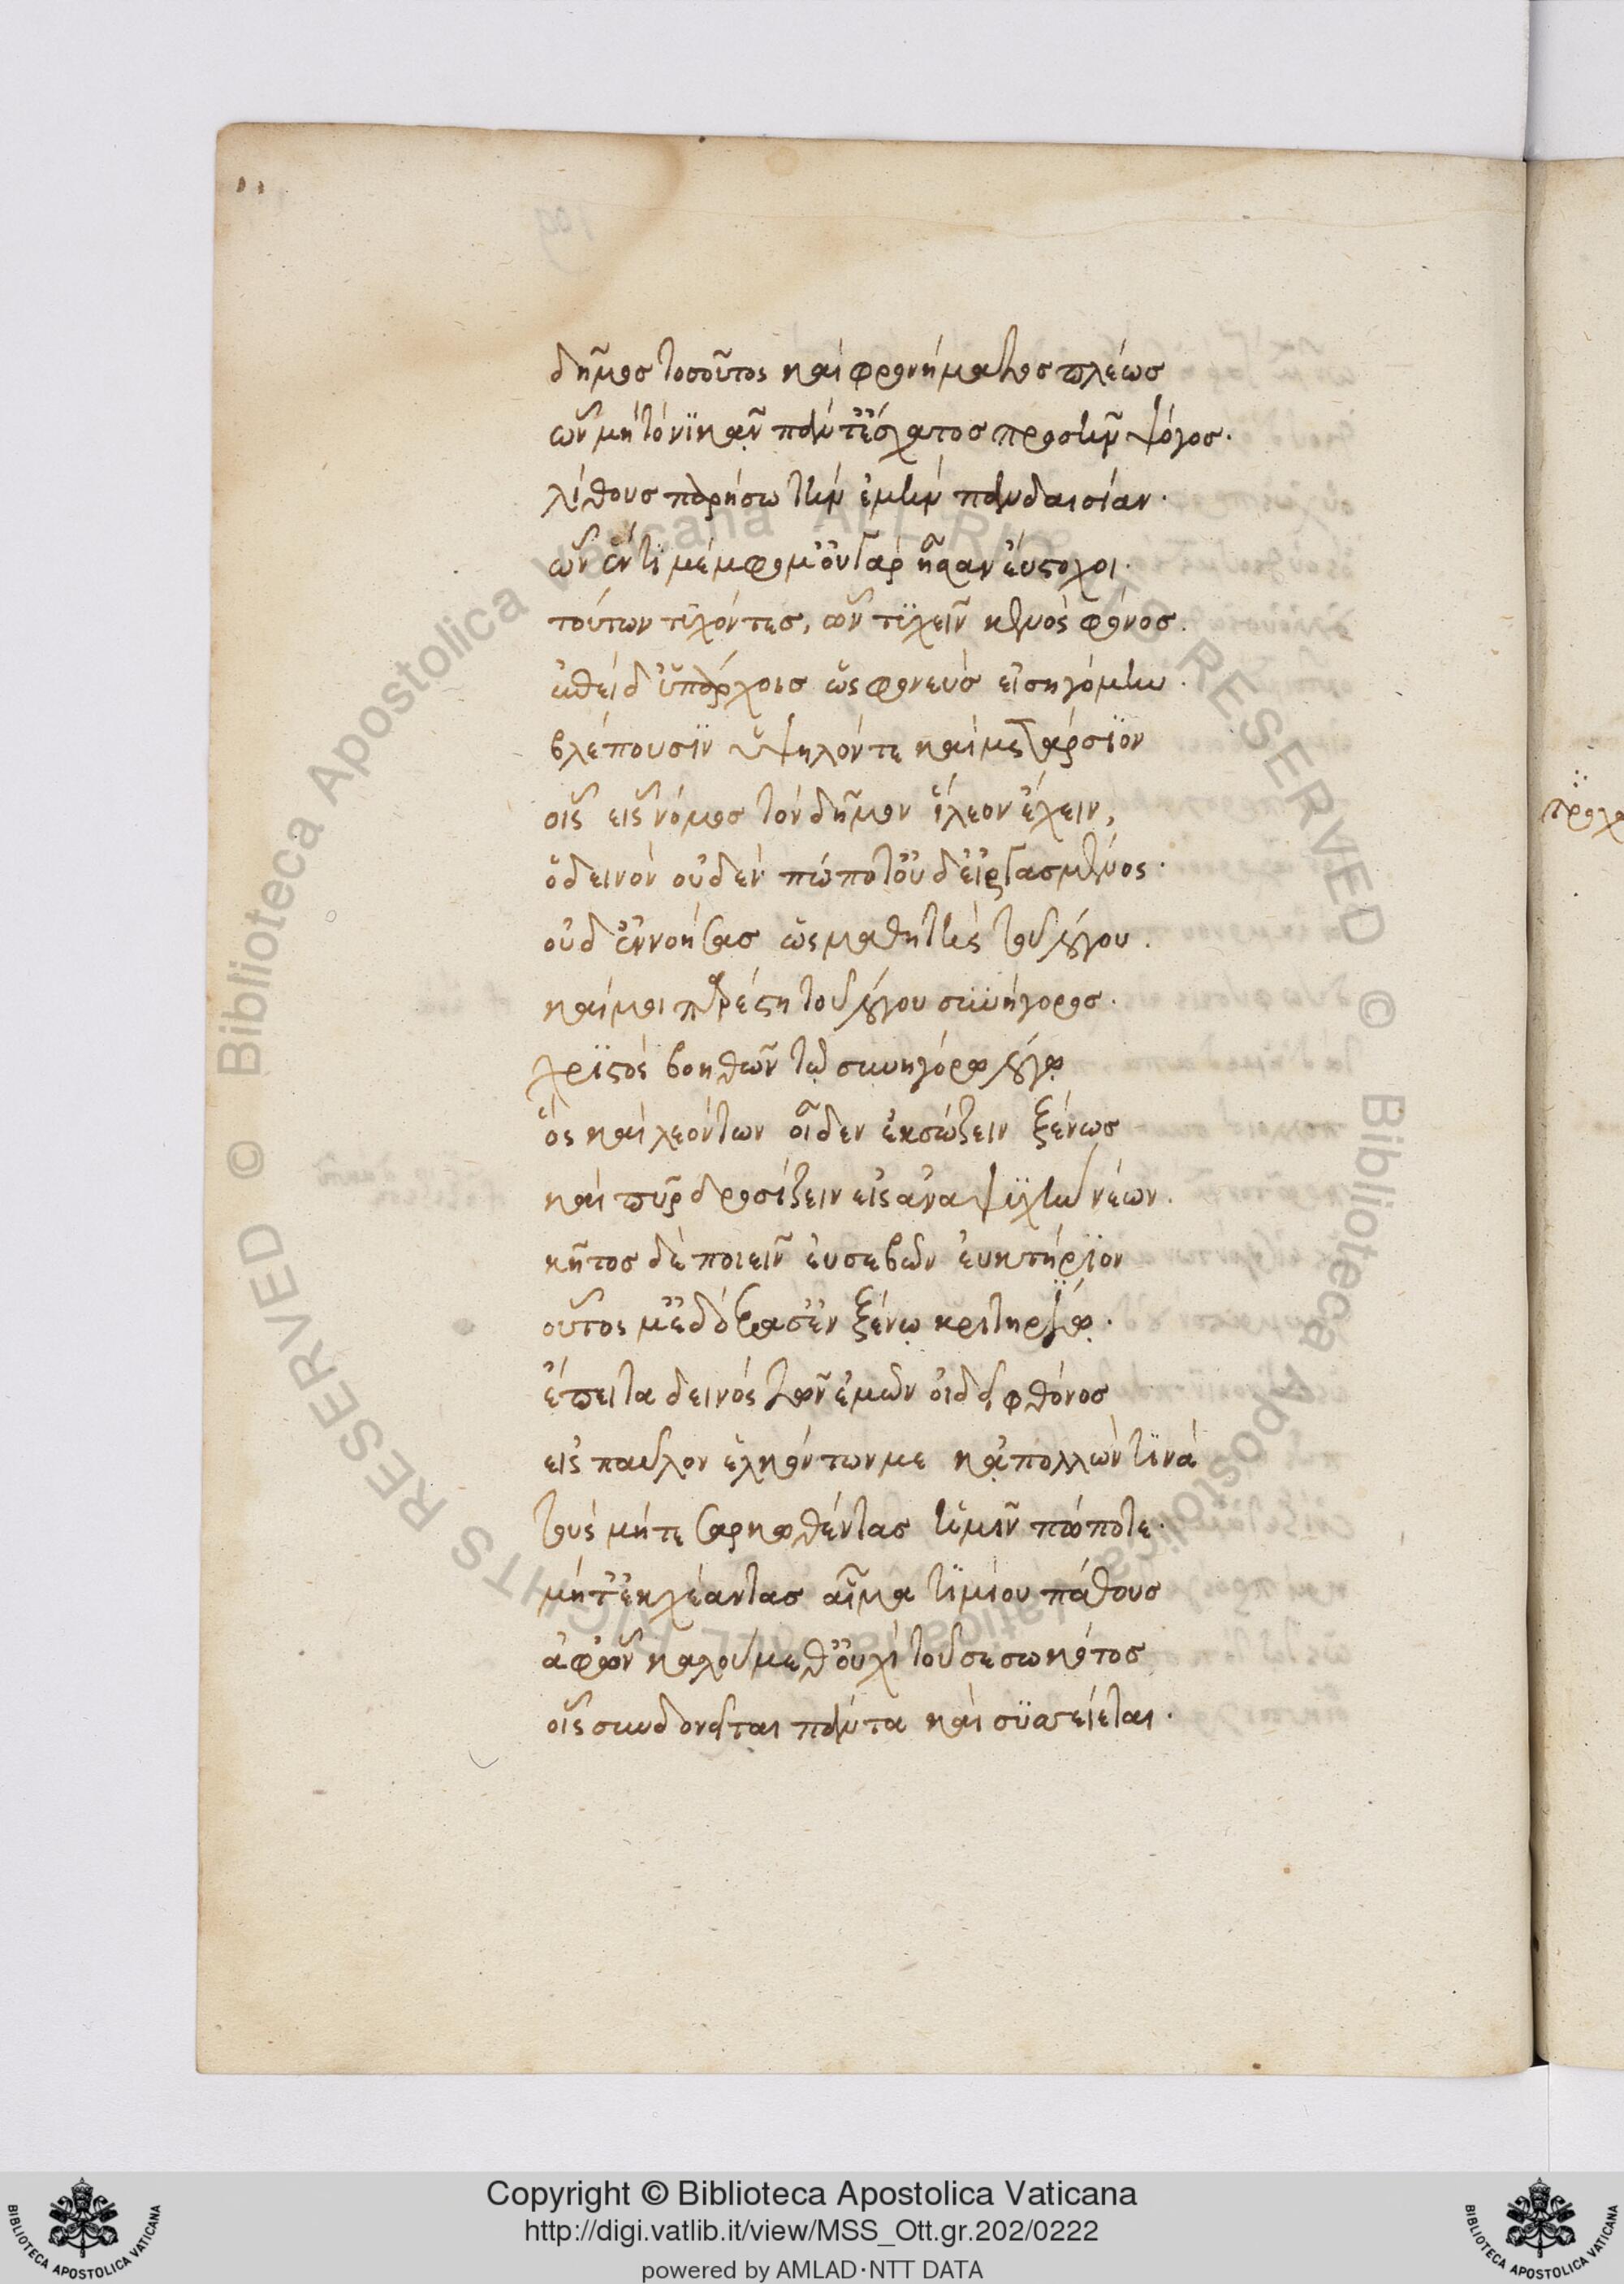 δῆμος τοσοῦτος καὶ φρονήματος πλέως
ὧν μὴ τὸ νϊκᾶν πάντ' ἔσχατος πρὸς τὴν ψόγος.
λίθους παρήσω τὴν ἐμὴν πανδαισίαν.
ὧν ἕν τι μέμφομ' οὐ γὰρ ἦσαν εὔστοχοι.
τούτων τϋχόντες, ὧν τϋχεῖν κλυὸς φόνος.
κᾀθεὶδ' ὑπάρχοις ὡς φονεὺς εἰσηγόμην.
βλέπουσϊν ὑψηλόν τε καὶ μετάρσϊον
οἷς εἷς νόμος τὸν δῆμον ἵλεον ἔχειν,
ὁ δεινὸν οὐδὲν πώποτ' οὐδ' εἰργασμένος.
οὐδ' ἐννοήσας ὡς μαθητὴς τοῦ λόγου.
καί μοι παρέστη τοῦ λόγου συνήγορος.
χρϊστὸς βοηθῶν τῷ συνηγόρῳ λόγῳ
ὃς καὶ λεόντων οἶδεν ἐκσώζειν ξένως
καὶ πῦρ δροσίζειν εἰς ἀναψϋχὴν νέων.
κῆτος δὲ ποιεῖν εὐσεβῶν εὐκτήρϊον
οὗτος μ' ἐδόξασ' ἐν ξένῳ κριτηρίῳ.
ἔπειτα δεινὸς τῶν ἐμῶν οἶδε φθόνος
εἰς παῦλον ἑλκόντων με κἀπολλών τϊνα
τοὺς μήτε σαρκωθέντας ἡμῖν πώποτε.
μήτ' ἐκχέαντας αἷμα τϊμίου πάθους
ἀφ' ὧν καλούμεθ' οὐχὶ τοῦ σεσωκότος
οἷς συνδονεῖται πάντα καὶ συσσείεται.
Copyright © Biblioteca Apostolica Vaticana
http://digi.vatlib.it/view/MSS_Ott.gr.202/0222
powered by AMLAD·NTT DATA